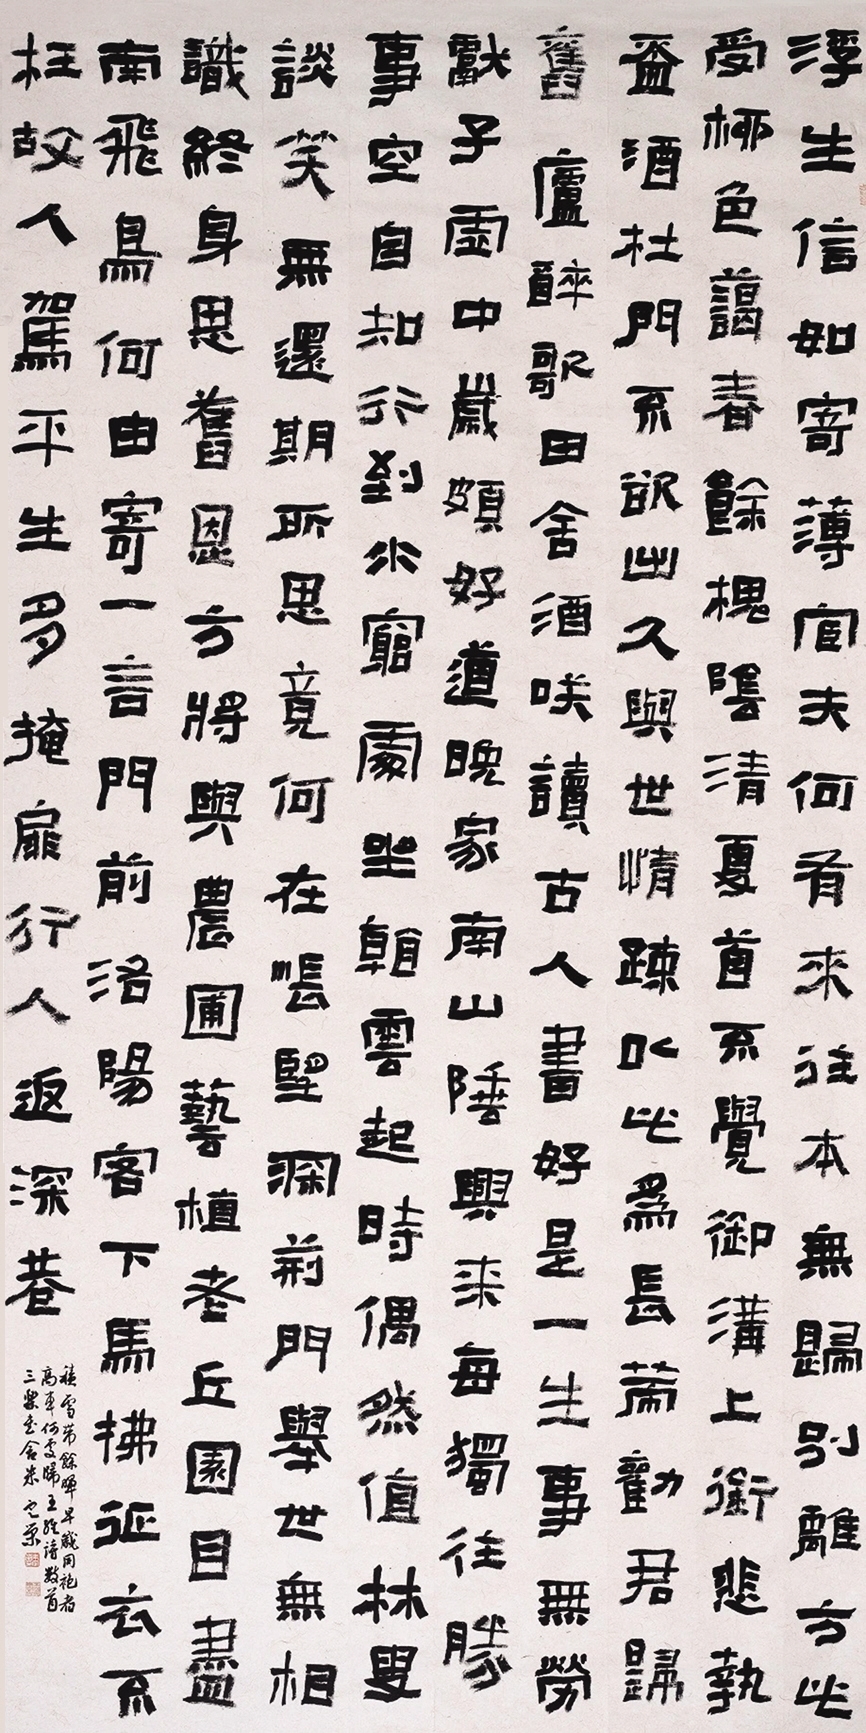 浮生信如寄薄宦夫何有来往本無歸別離方此
受柳色藹春餘槐陰清夏首不覺御溝上銜悲執
盃酒杜門不欲出久與世情疎以此爲長策勸君歸
舊廬醉歌田舍酒咲讀古人書好是一生事無勞
獻子虛中歲頗好道晚家南山陲興来每獨往勝
事空自知行到水窮處坐看雲起時偶然值林叟
談笑無還期所思竟何在悵望深荆門舉世無相
識終身思舊恩方將與農圃藝植老丘園目盡
南飛鳥何由寄一言門前洛陽客下馬拂征衣不
枉故人駕平生多掩扉行人返深巷
積雪帶餘暉早歲同袍者
高車何處歸王維詩数首
三樂